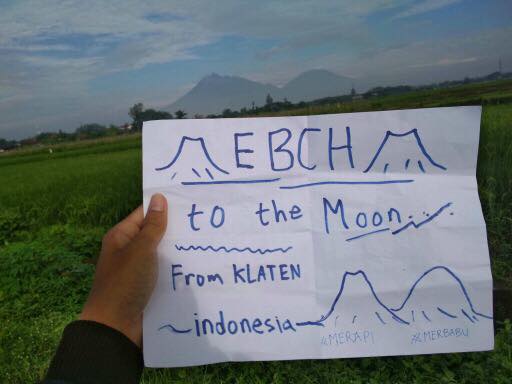 EBCH
to the Moon...
From KLATEN
indonesia
MERAPI MERBABU